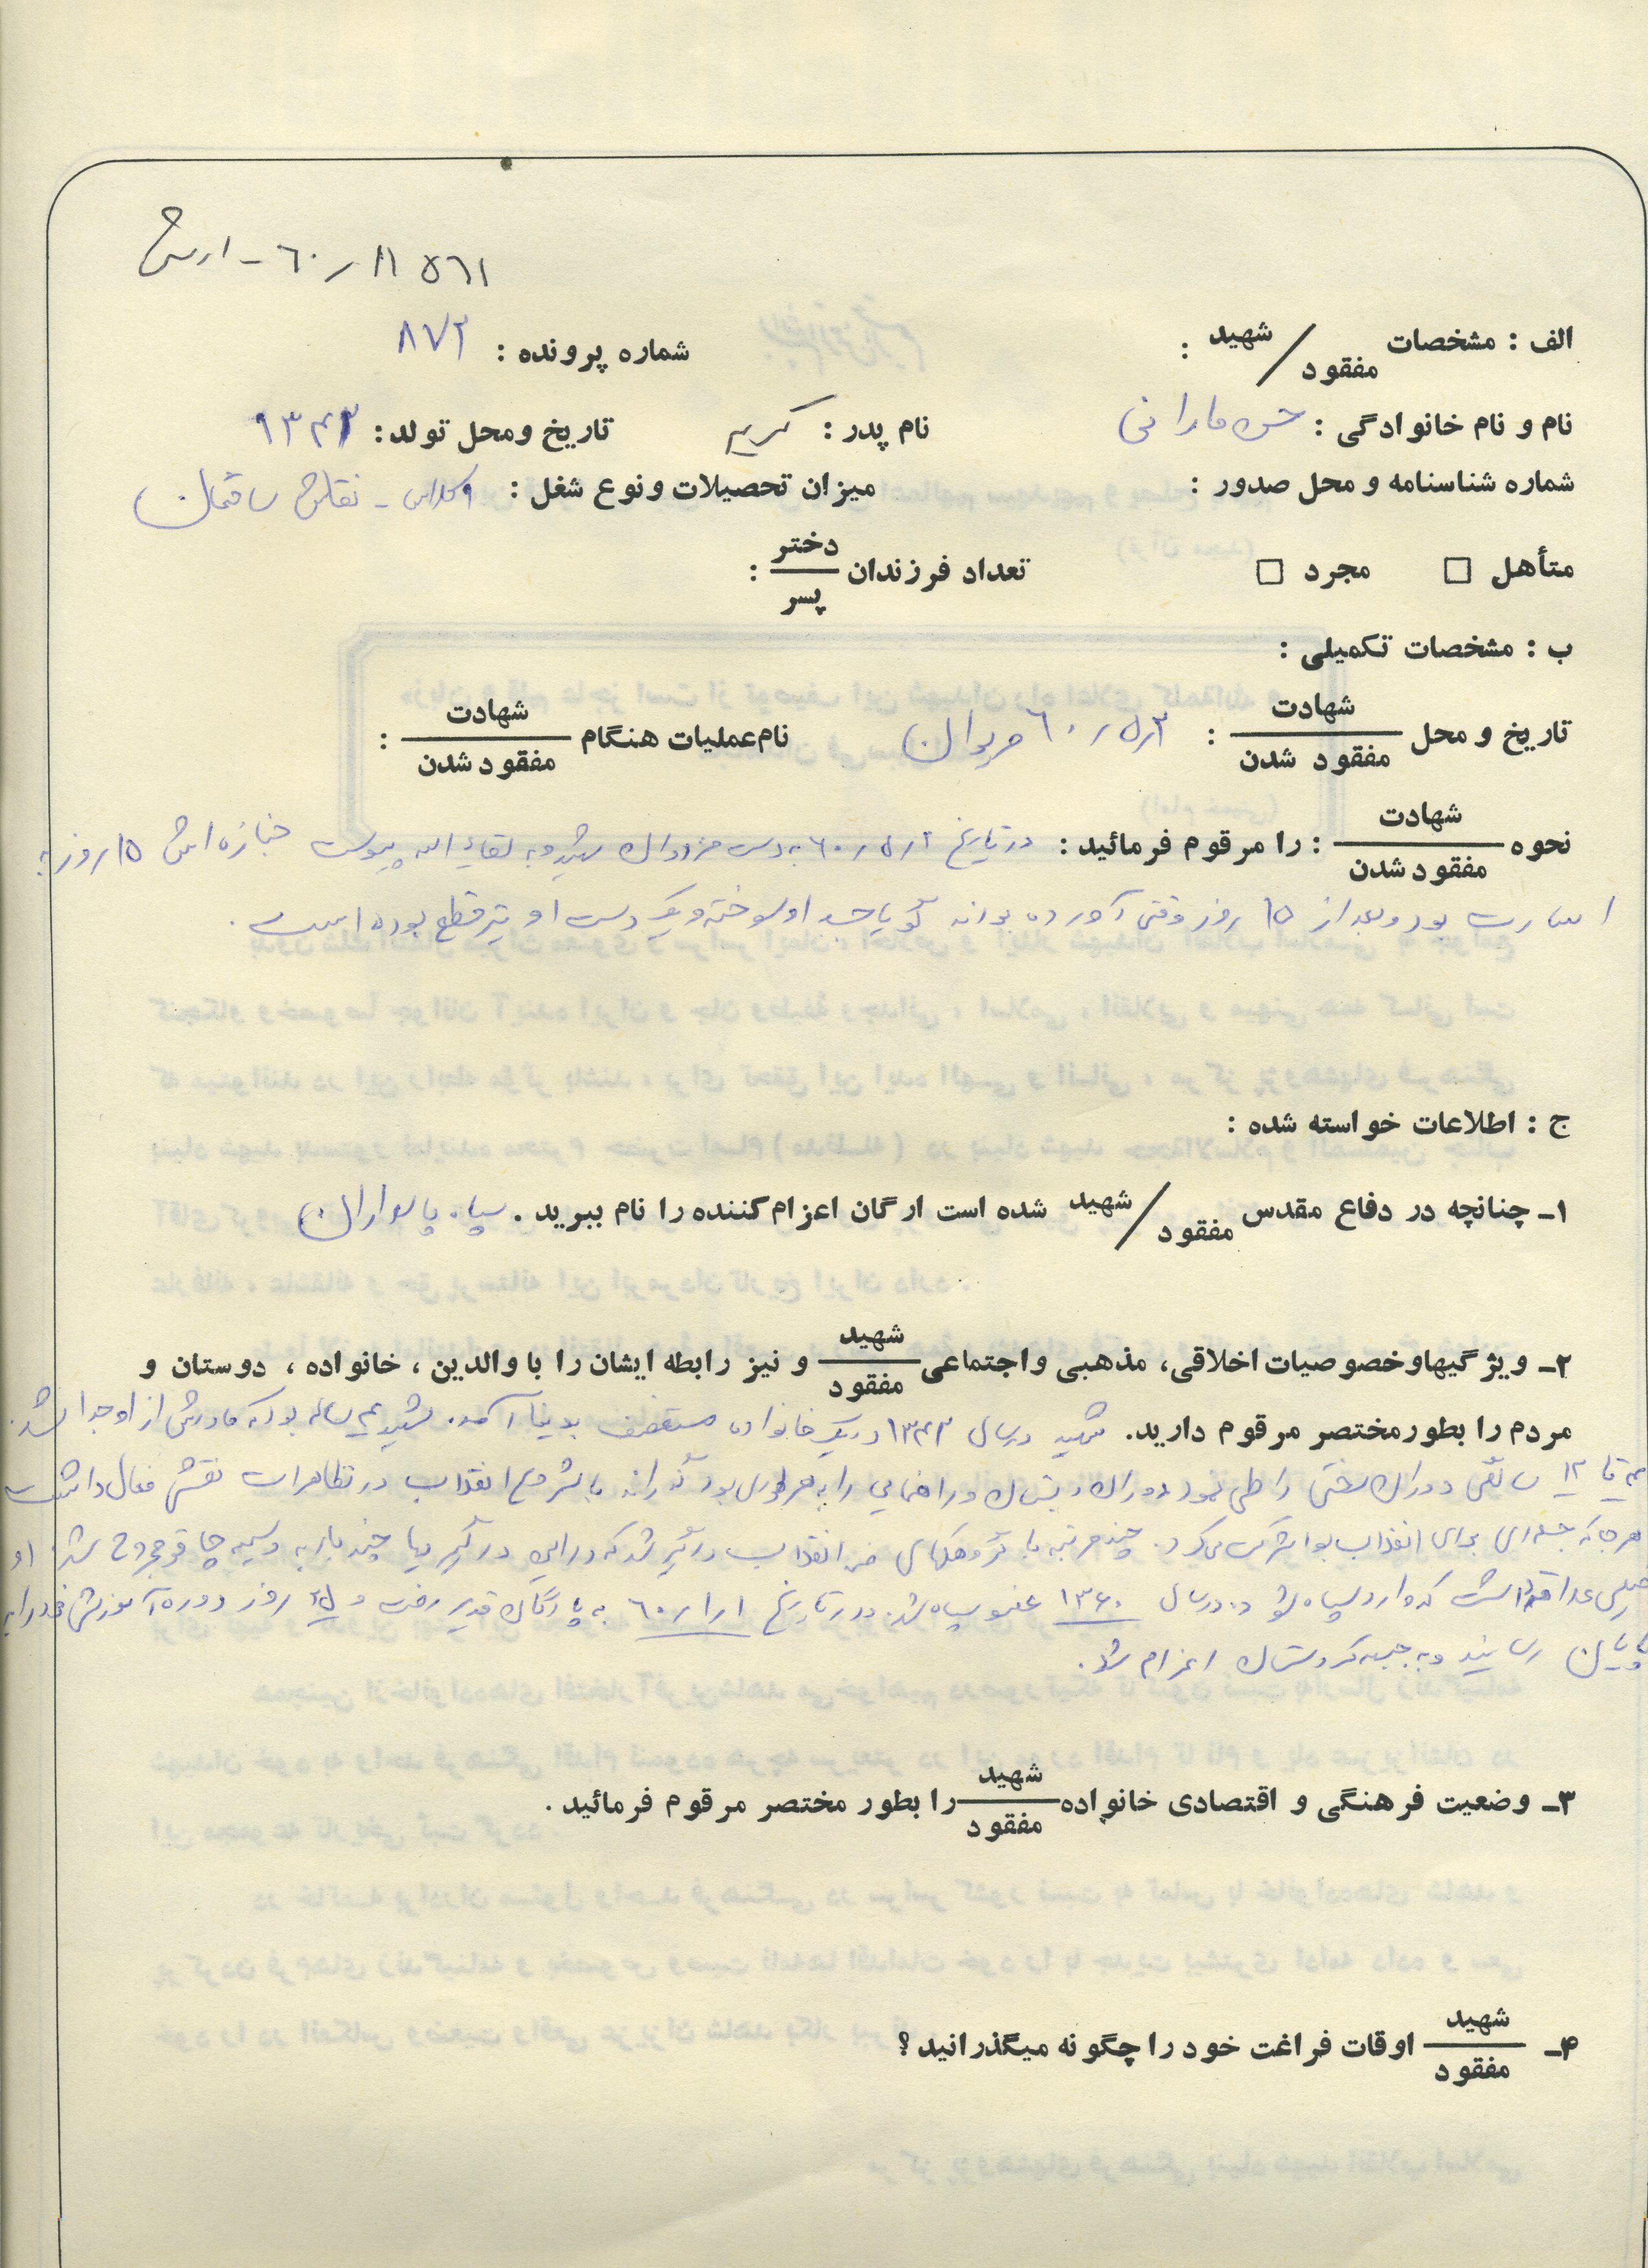 ۶۰/۱۱۵۶۱ - ارس
الف : مشخصات شهید / مفقود :
شماره پرونده : ۸۷۲
نام و نام خانوادگی : حسن مارانی نام پدر : کریم تاریخ ومحل تولد : ۱۳۴۳
شماره شناسنامه و محل صدور : میزان تحصیلات ونوع شغل : ۹ کلاس - نقاش ساختمان
متأهل □ مجرد □ تعداد فرزندان دختر / پسر :
ب : مشخصات تکمیلی :
تاریخ و محل شهادت / مفقود شدن : ۶۰/۵/۳ مریوان نام عملیات هنگام شهادت / مفقود شدن :
نحوه شهادت / مفقود شدن : را مرقوم فرمائید : در تاریخ ۶۰/۵/۲ به دست مزدوران شهید و به لقاء الله پیوست جنازه اش ۱۵ روز به
اسارت بود و بعد از ۱۵ روز وقتی آورده بودند گویا جسد او سوخته و یک دست او نیز قطع بوده است .
ج : اطلاعات خواسته شده :
۱ـ چنانچه در دفاع مقدس شهید / مفقود شده است ارگان اعزام کننده را نام ببرید . سپاه پاسداران
۲ـ ویژگیهاوخصوصیات اخلاقی، مذهبی واجتماعی شهید / مفقود و نیز رابطه ایشان را با والدین ، خانواده ، دوستان و
مردم را بطور مختصر مرقوم دارید. شهید در سال ۱۳۴۳ در یک خانواده مستضعف بدنیا آمد. شهید ساله بود که مادرش از او جدا شد.
تا ۱۲ سالگی دوران سختی را طی نمود دوران دبستان و راهنمایی را به هر طوری بود گذراند با شروع انقلاب در تظاهرات نقش فعال داشت
هر جا که جلسه ای برای انقلاب بود شرکت می کرد. چند مرتبه با گروهکهای ضد انقلاب درگیر شد که در این درگیریها چند بار به وسیله چاقو مجروح شد. او
خیلی علاقه داشت که وارد سپاه شود . در سال ۱۳۶۰ عضو سپاه شد. و در تاریخ ۶۰/۱/۱ به پادگان قدیر رفت و ۲۵ روز دوره آموزش خود را به
پایان رسانید و به جبهه کردستان اعزام شد .
۳ـ وضعیت فرهنگی و اقتصادی خانواده شهید / مفقود را بطور مختصر مرقوم فرمائید .
۴ـ شهید / مفقود اوقات فراغت خود را چگونه میگذرانید ؟